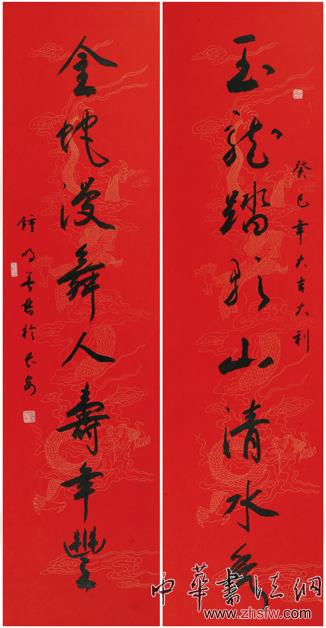 癸巳年大吉大利
玉龍踏山清水秀
金蛇漫舞人壽年豐
鐘明善書於長安
中華書法網
www.zhsfw.com